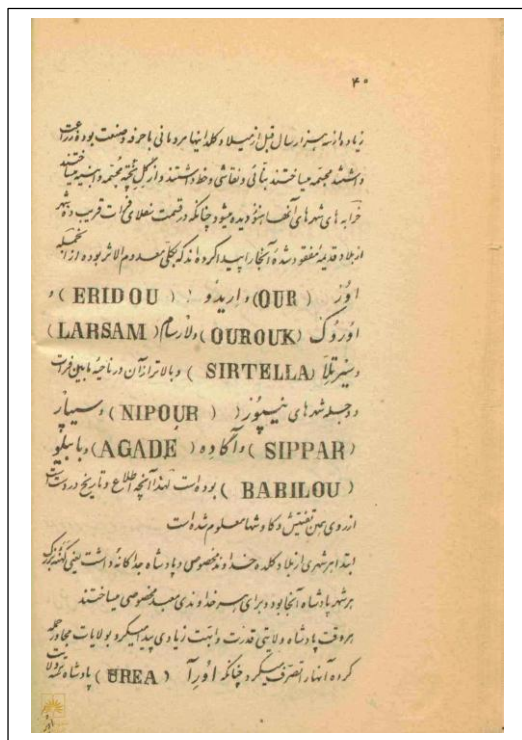 ۴۰
زیاده از سه هزار سال قبل از میلاد کلدانیها مردمانی با حرفه و صنعت بوده زراعت
داشتند مجسمه میساختند بنائی و نقاشی و خط داشتند و از گل پخته مجسمه و ابنیه میساختند
خرابه های شهرهای آنها هنوز دیده میشود چنانکه در قسمت سفلای فرات قریب ده شهر
از بلاد قدیمهٔ مفقود شدهٔ آنجا را پیدا کرده اند که بکلی معدوم الاثر بوده از آنجمله
اوُر (OUR) و اریدُو (ERIDOU) و
اوُروُک (OUROUK) و لارسام (LARSAM)
و سیرتِلّا (SIRTELLA) و بالاتر از آن در ناحیهٔ مابین فرات
و دجله شهرهای نیپوُر (NIPOUR) و سیپار
(SIPPAR) و آگاده (AGADE) و بابیلو
(BABILOU) بوده است لهذا آنچه اطلاع و تاریخ در دست است
از روی همین تفتیش و کاوشها معلوم شده است
ابتدا هر شهری از بلاد کلده خداوند مخصوصی و پادشاه جداگانهٔ داشت یعنی کشیش بزرگ
هر شهر پادشاه آنجا بود و برای سر خداوندی معبد مخصوصی میساختند
هر وقت پادشاه ولایتی قدرت و ابهت زیادی پیدا میکرد بولایات مجاور حمله
کرده آنها را تصرف میکرد چنانکه اوُرِآ (UREA) پادشاه
اوُر